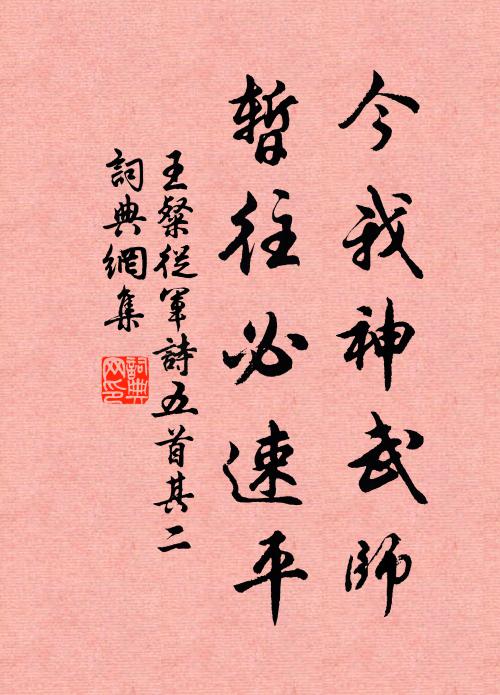 今我神武師
暫往必速平
王粲從軍詩五首其二
詞典網集
詞典網印